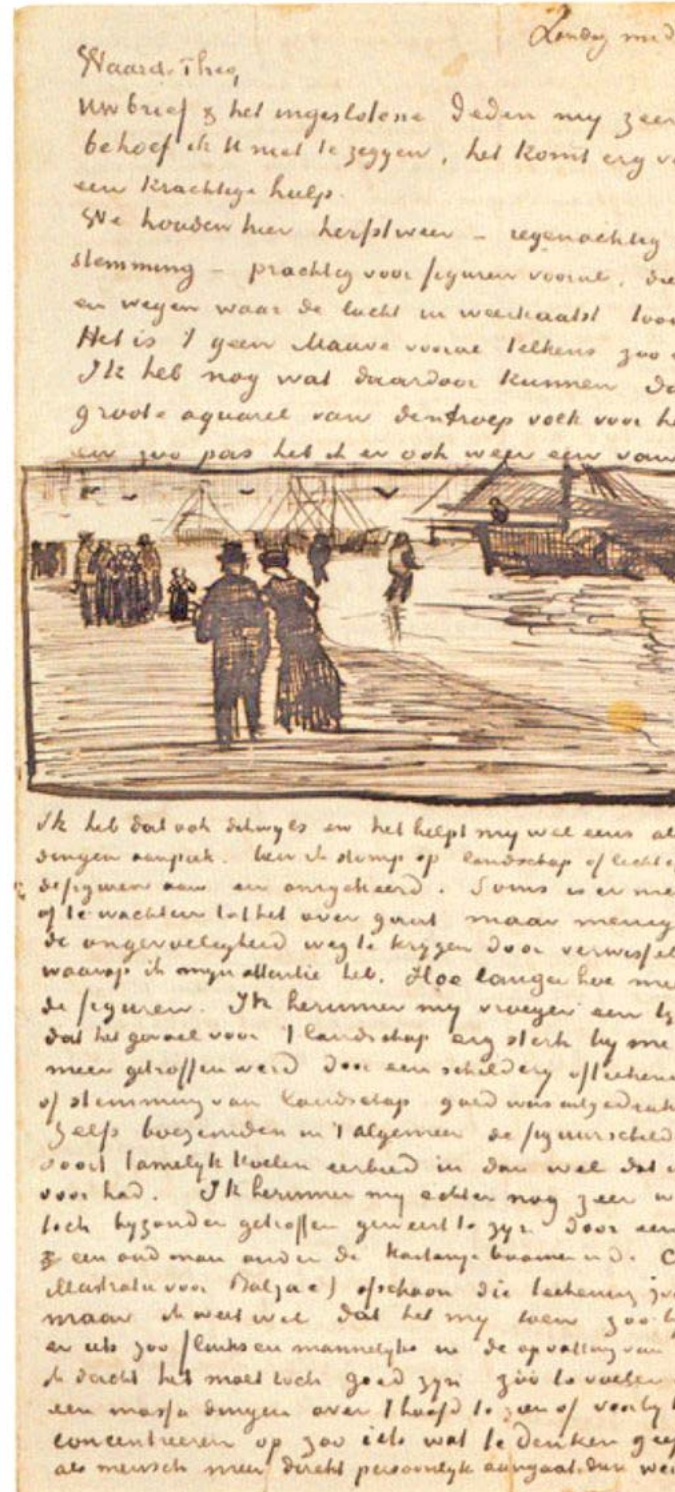 Zondag mid
Waarde Theo,
Uw brief & het ingeslotene deden my zeer
behoef ik U niet te zeggen, het komt erg v
een krachtige hulp.
We houden hier herfstweer – regenachtig
stemming – prachtig voor figuren vooral, die
en wegen waar de lucht in weerkaatst
Het is 't geen Mauve vooral telkens zoo
Ik heb nog wat daardoor kunnen do
groote aquarel van den troep volk voor h
en zoo pas heb ik er ook weer een van
Ik heb dat ook dikwyls en het helpt my wel eens al
dingen aanpak. Ben ik stomp op landschap of lichte
de figuren aan en omgekeerd. Soms is er nie
of te wachten tot het over gaat maar menig
de ongevoeligheid weg te krygen door verwissel
waarop ik myn attentie heb. Hoe langer hoe me
de figuren. Ik herinner my vroeger een ty
dat het gevoel voor 't landschap erg sterk by me
meer getroffen werd door een schildery of teekeni
of stemming van landschap goed was uitgedrukt
Zelfs boezemden in 't algemeen de figuurschild
soort tamelyk koelen eerbied in dan wel dat i
voor had. Ik herinner my echter nog zeer
toch byzonder getroffen geweest te zyn door een
een oud man onder de kastanje boomen
illustratie voor Balzac) ofschoon die teekening
maar ik weet wel dat het my toen zoo
er iets zoo flinks en mannelyks in de opvatting van
ik dacht het moet toch goed zyn zóó te voelen
een massa dingen over 't hoofd te zien of voorby
concentreeren op zoo iets wat te denken geef
als mensch meer direkt persoonlyk aangaat dan wei